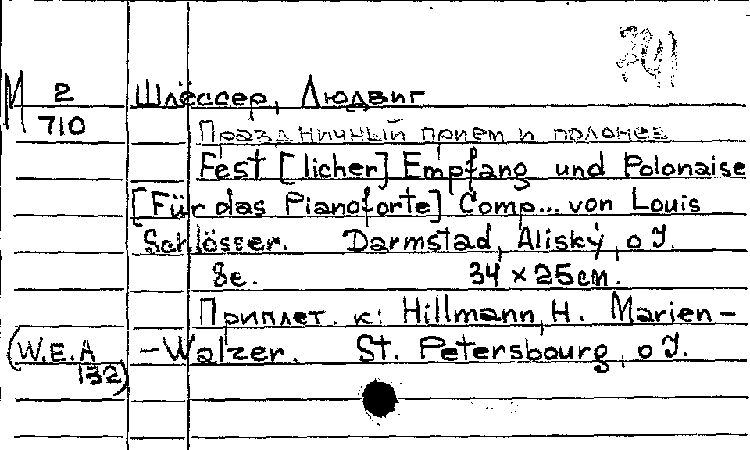 М 2 Шлёссер, Людвиг
710
Праздничный прием и полонез
Fest [licher] Empfang und Polonaise
[Für das Pianoforte] Comp... von Louis
Schlösser. Darmstad, Alisky, o J.
8с. 34 × 25см.
Приплет. к: Hillmann, H. Marien-
(W.E.A -Walzer. St. Petersbourg, o J.
132)